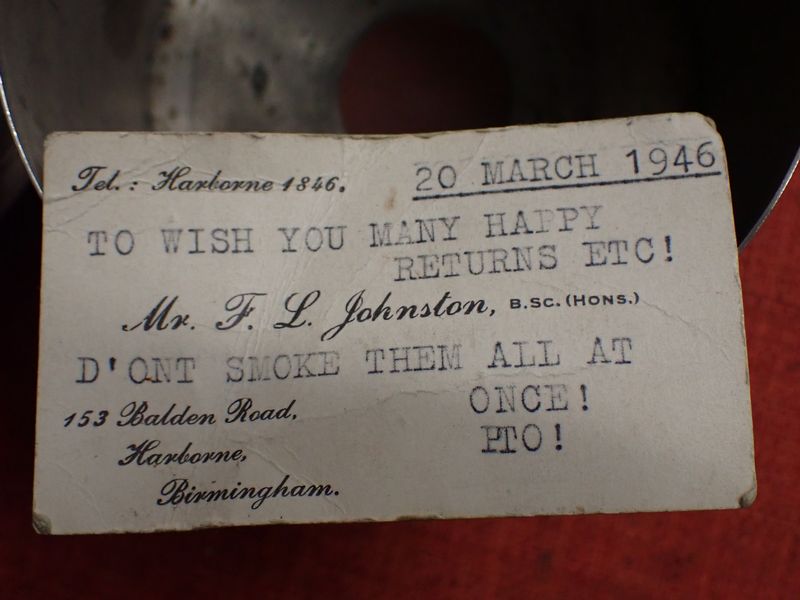 Tel.: Harborne 1846.
20 MARCH 1946
TO WISH YOU MANY HAPPY
RETURNS ETC!
Mr. F. L. Johnston, B.SC. (HONS.)
D'ONT SMOKE THEM ALL AT
ONCE!
153 Balden Road,
PTO!
Harborne,
Birmingham.